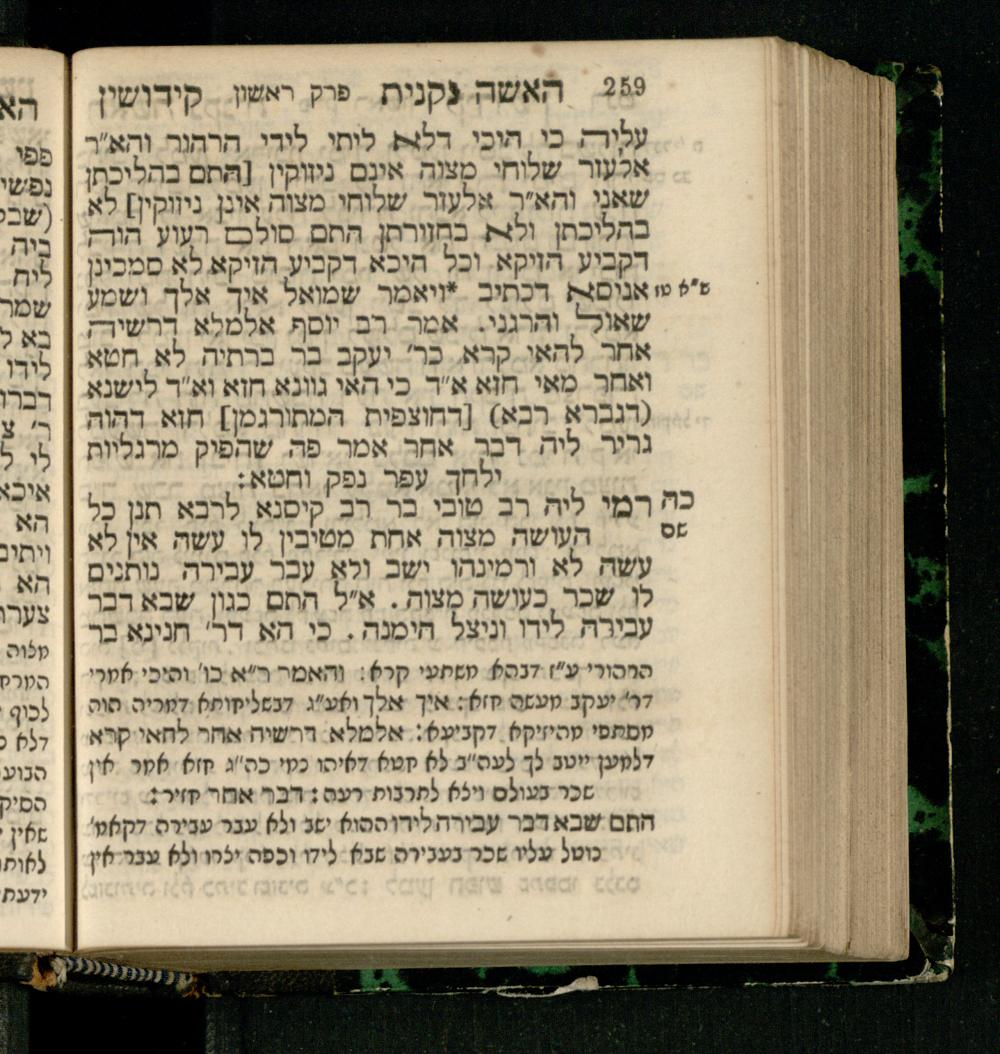 259 האשה נקנית פרק ראשון קידושין
עליה כי היכי דלא ליתי לידי הרהור והא״ר
אלעזר שלוחי מצוה אינם ניזוקין [התם בהליכתן
שאני והא״ר אלעזר שלוחי מצוה אינן ניזוקין] לא
בהליכתן ולא בחזורתן התם סולם רעוע הוה
דקביע הזיקא וכל היכא דקביע הזיקא לא סמכינן
ש״א טז אניסא דכתיב *ויאמר שמואל איך אלך ושמע
שאול והרגני. אמר רב יוסף אלמלא דרשיה
אחר להאי קרא כר׳ יעקב בר ברתיה לא חטא
ואחר מאי חזא א״ד כי האי גוונא חזא וא״ד לישנא
(דגברא רבא) [דחוצפית המתורגמן] חזא דהוה
גריר ליה דבר אחר אמר פה שהפיק מרגליות
ילחך עפר נפק וחטא:
כה רמי ליה רב טובי בר רב קיסנא לרבא תנן כל
שם העושה מצוה אחת מטיבין לו עשה אין לא
עשה לא ורמינהו ישב ולא עבר עבירה נותנים
לו שכר כעושה מצוה. א״ל התם כגון שבא דבר
עבירה לידו וניצל הימנה. כי הא דר׳ חנינא בר
הרהורי ע״ז דבהא משתעי קרא: והאמר ר״א כו׳ והיכי אמרי
דר׳ יעקב מעשה חזא: איך אלך ואע״ג דבשליחותא דמריה הוה
מסתפי מהיזיקא דקביעא: אלמלא דרשיה אחר להאי קרא
דלמען ייטב לך לעה״ב לא חטא דאיהו כמי כה״ג חזא אמר אין
שכר בעולם ויצא לתרבות רעה: דבר אחר חזיר:
התם שבא דבר עבירה לידו ההוא ישב ולא עבר עבירה דקאמ׳
נוטל עליו שכר בעבירה שבא לידו וכפה יצרו ולא עבר אין
האש
פפי
נפשי
ביה
ליה
שמר
בא ל
לידו
ר׳ צ
לי ל
איכא
הא
ויתיב
הא
צערו
מצוה
לכוף
דלא
שאין